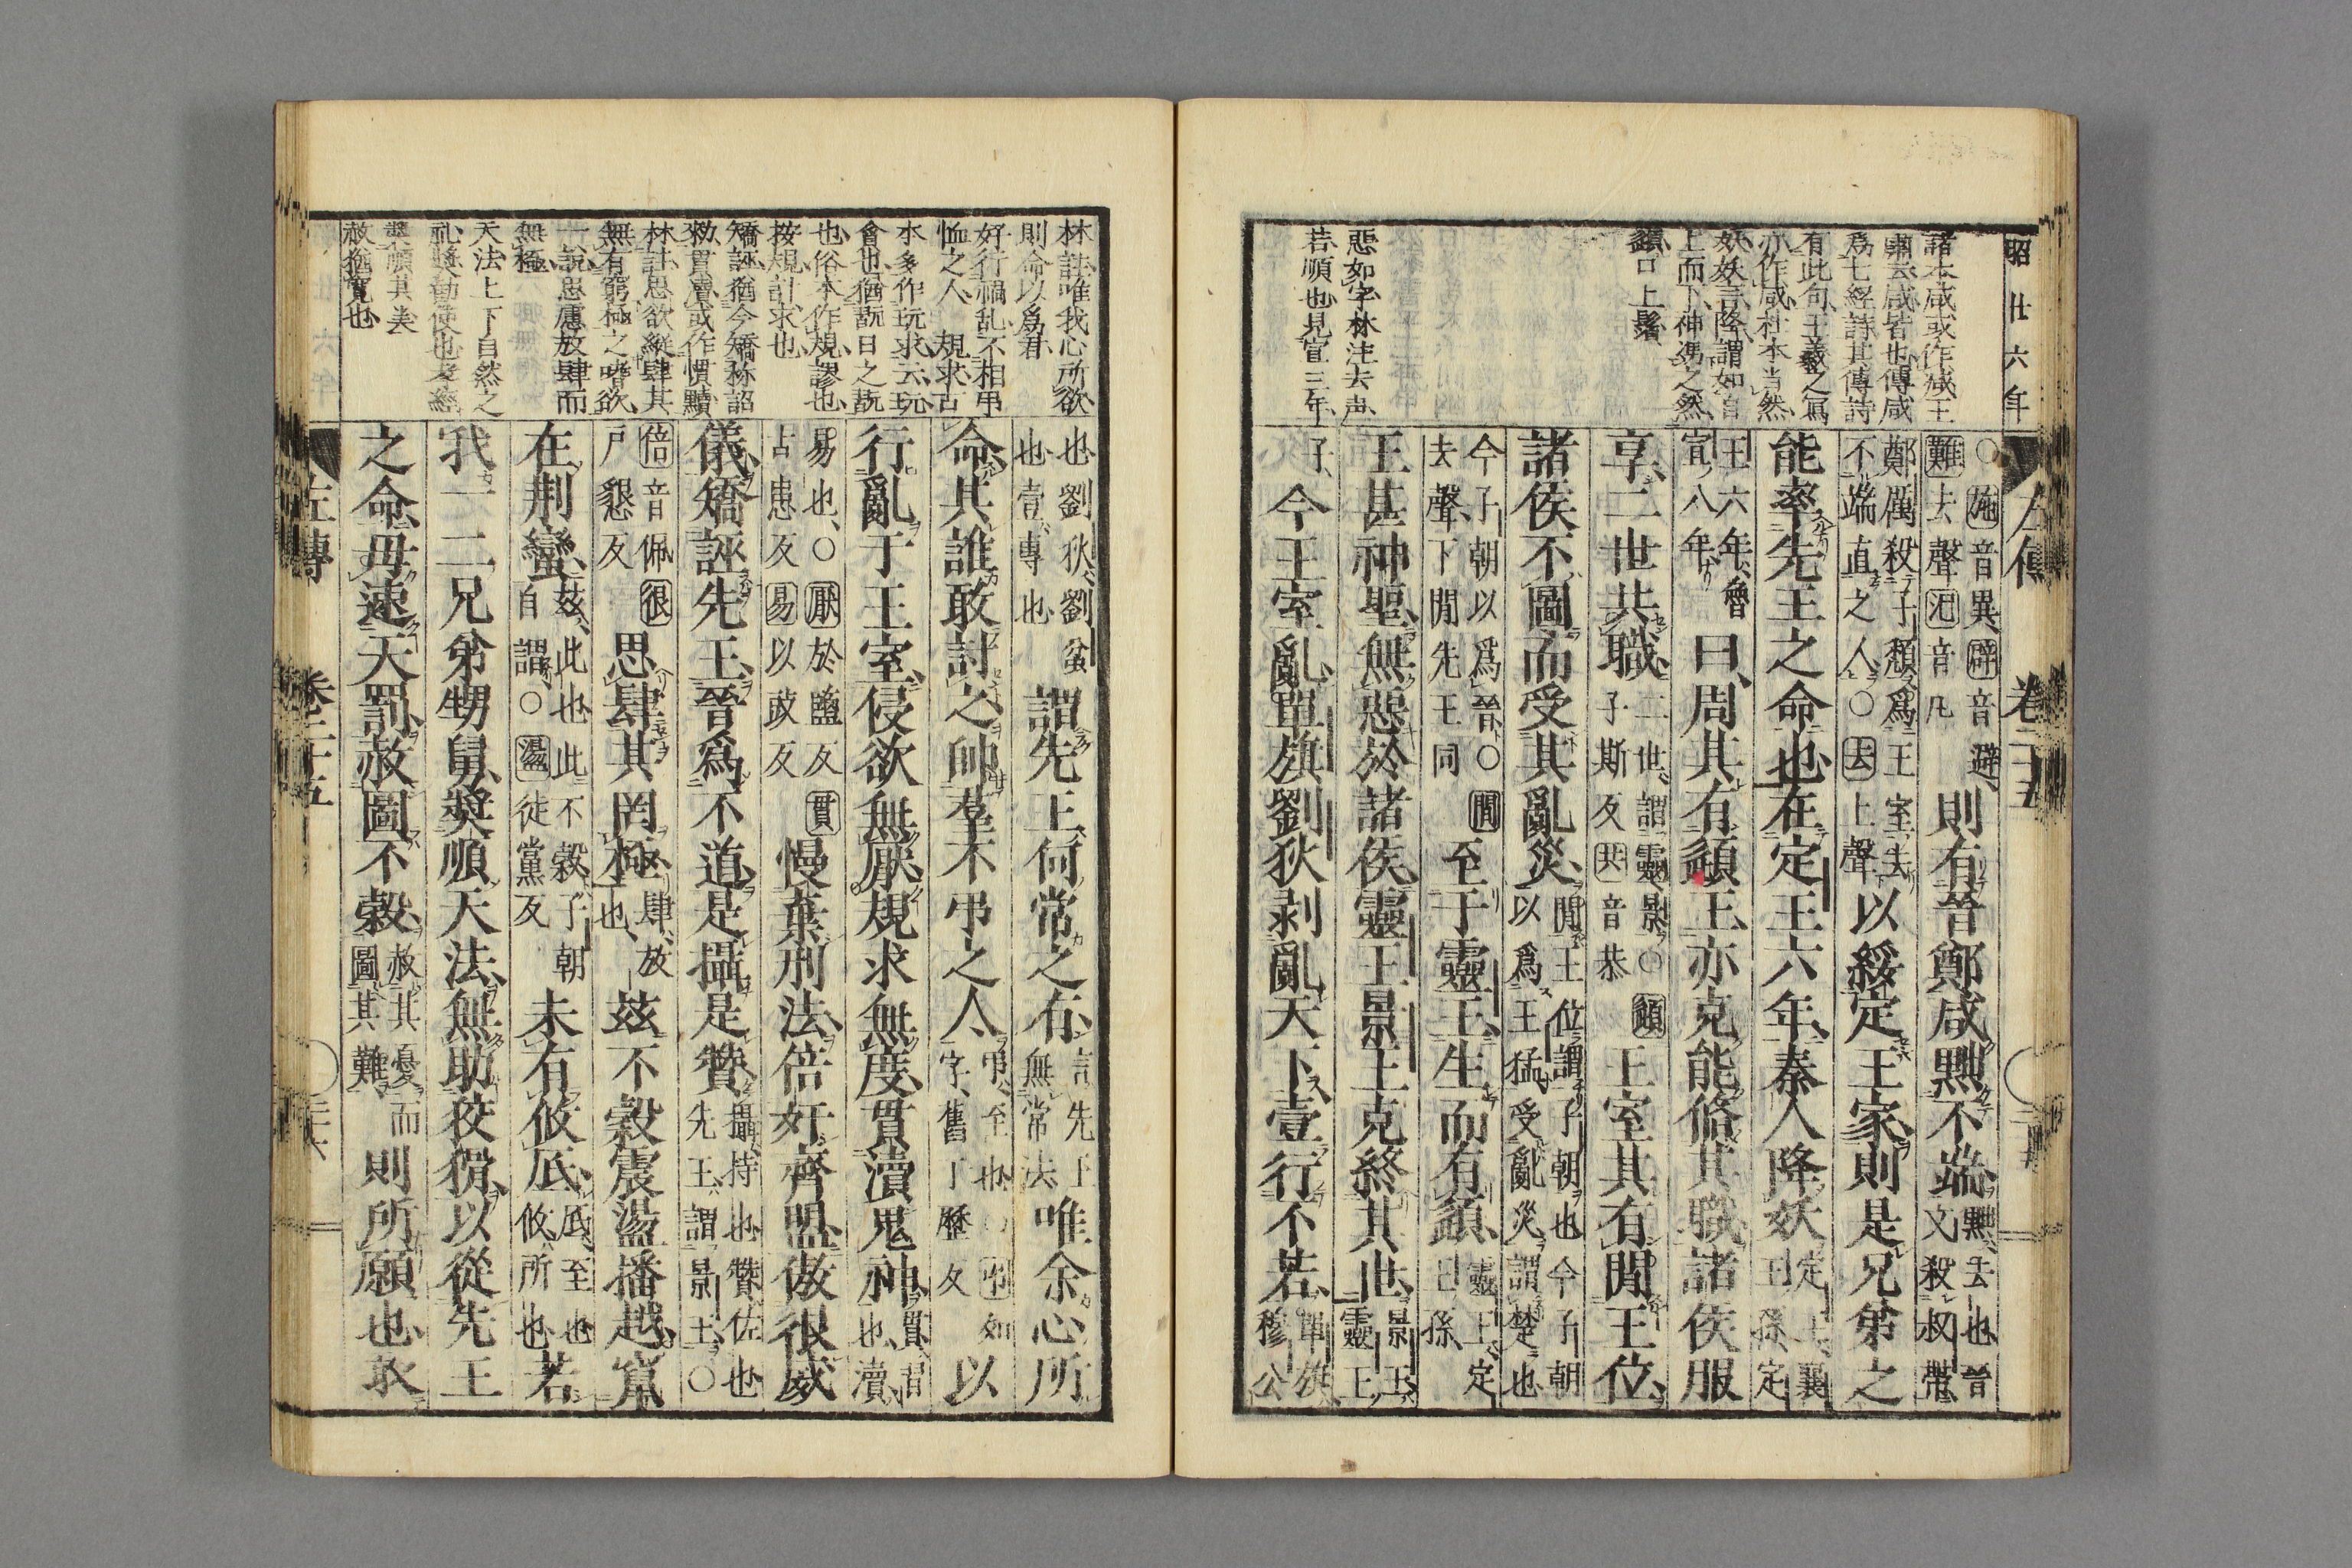 昭廿六年
左傳 卷二十五
諸本咸或作減王
肅云咸皆也傳咸
爲七經詩其傳詩
有此句王羲之寫
亦作咸杜本当然
妖妖言降謂如自
上而下神馮之然
頿口上鬚
惡如字林注去声
若順也見宣三年
○施音異辟音避
難去聲氾音凡
則有晉鄭咸黜不端
黜去也晉
文殺叔帶
鄭厲殺子頹爲王室去
不端直之人○去上聲
以綏定王家則是兄弟之
能率先王之命也在定王六年秦人降妖
定王襄
王孫定
王六年魯
宣八年
曰周其有頿王亦克能脩其職諸侯服
享二世共職
二世謂靈景○頿
子斯反共音恭
王室其有閒王位
諸侯不圖而受其亂災
閒王位謂子朝也今子朝
以爲王猛受亂災謂楚也
今子朝以爲晉○閒
去聲下閒先王同
至于靈王生而有頿
靈王定
王孫
王甚神聖無惡於諸侯靈王景王克終其世
景王
靈王
子
今王室亂單旗劉狄剝亂天下壹行不若
單旗
穆公
林註唯我心所欲
則命以爲君
好行禍乱不相弔
恤之人 規求古
本多作玩求云玩
會也猶翫日之翫
也俗本作規謬也
按規計求也
矯誣猶今矯称詔
敕貫瀆或作慣黷
林註思欲縱肆其
無有窮極之嗜欲
一説思慮放肆而
無極
天法上下自然之
礼奬勸使也
奬順其美
赦猶寬也
也劉狄劉蚠
也壹專也
謂先王何常之有
言先王
無常法
唯余心所
命其誰敢討之帥羣不弔之人
弔至也○弔如
字舊丁歷反
以
行亂于王室侵欲無厭規求無度貫瀆鬼神
貫習
也瀆
易也○厭於鹽反貫
古患反易以豉反
慢棄刑法倍奸齊盟傲很威
儀矯誣先王晉爲不道是攝是贊
攝持也贊佐也
先王謂景王○
倍音佩很
戸懇反
思肆其罔極
肆放
也
茲不穀震盪播越竄
在荆蠻
茲此也此不穀子朝
自謂○盪徒黨反
未有攸厎
厎至也
攸所也
若
我一二兄弟甥舅奬順天法無助狡猾以從先王
之命毋速天罰赦圖不穀
赦其憂而
圖其難
則所願也敢
左傳 卷二十五